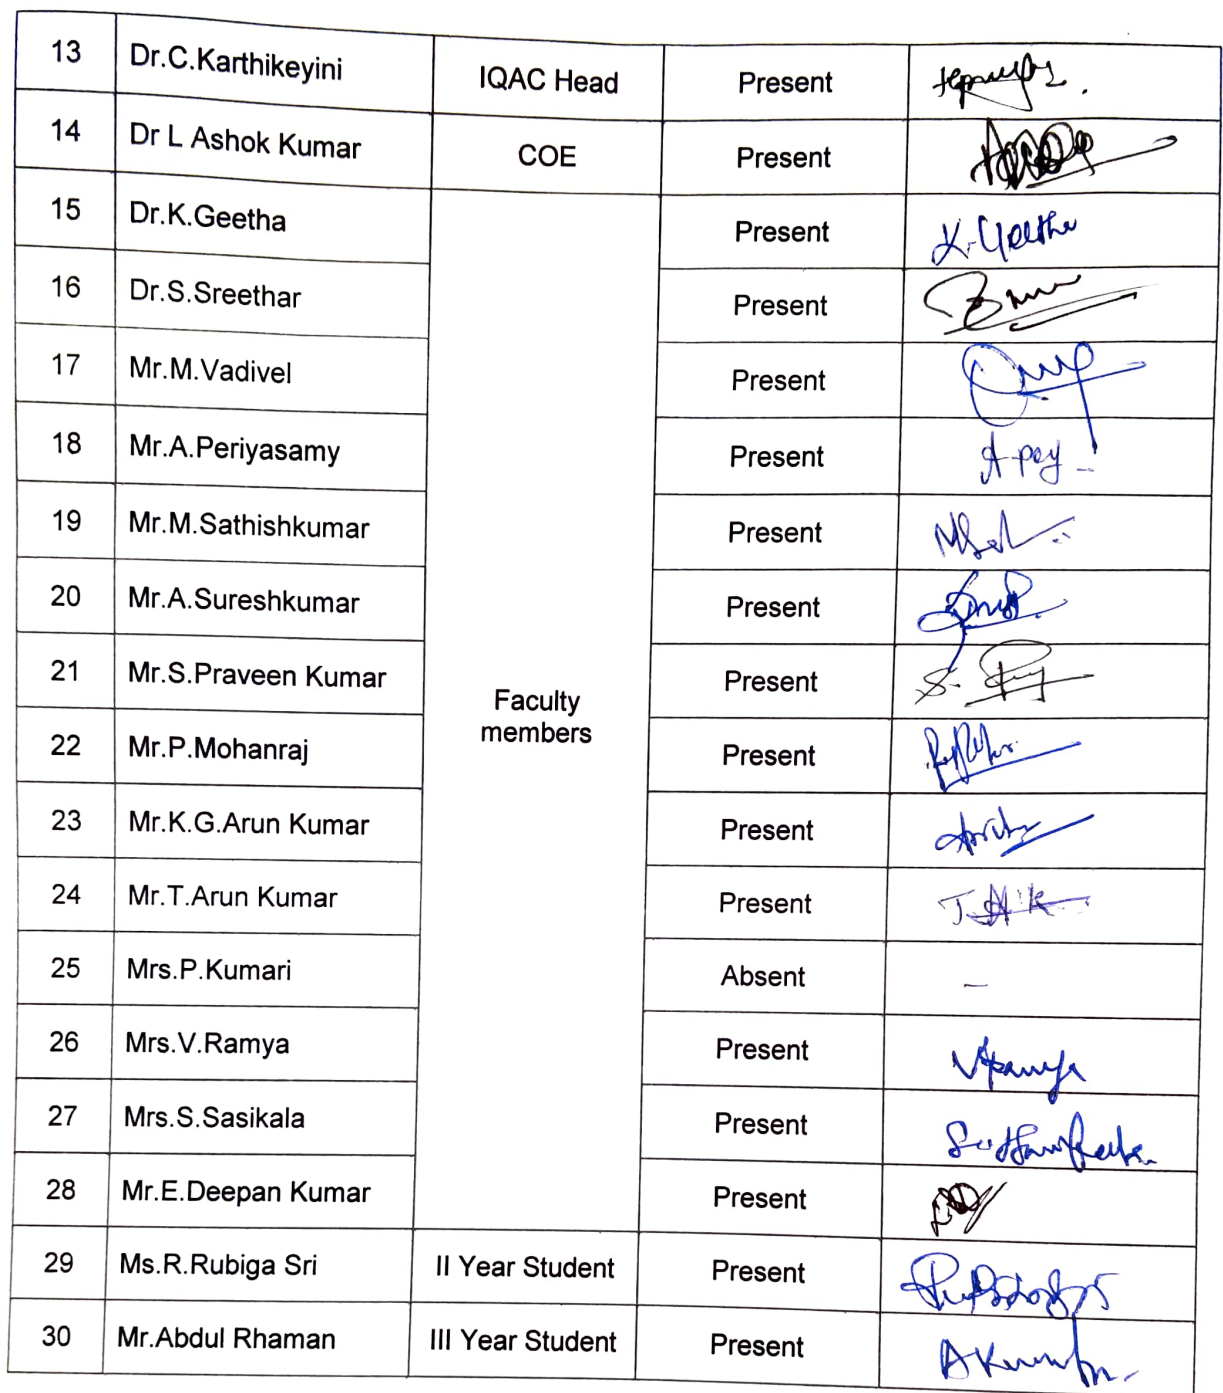 13 Dr.C.Karthikeyini IQAC Head Present
14 Dr L Ashok Kumar COE Present
15 Dr.K.Geetha Present K. Geetha
16 Dr.S.Sreethar Present
17 Mr.M.Vadivel Present
18 Mr.A.Periyasamy Present
19 Mr.M.Sathishkumar Present
20 Mr.A.Sureshkumar Present
21 Mr.S.Praveen Kumar Present
Faculty
members
22 Mr.P.Mohanraj Present
23 Mr.K.G.Arun Kumar Present
24 Mr.T.Arun Kumar Present
25 Mrs.P.Kumari Absent -
26 Mrs.V.Ramya Present
27 Mrs.S.Sasikala Present
28 Mr.E.Deepan Kumar Present
29 Ms.R.Rubiga Sri II Year Student Present
30 Mr.Abdul Rhaman III Year Student Present